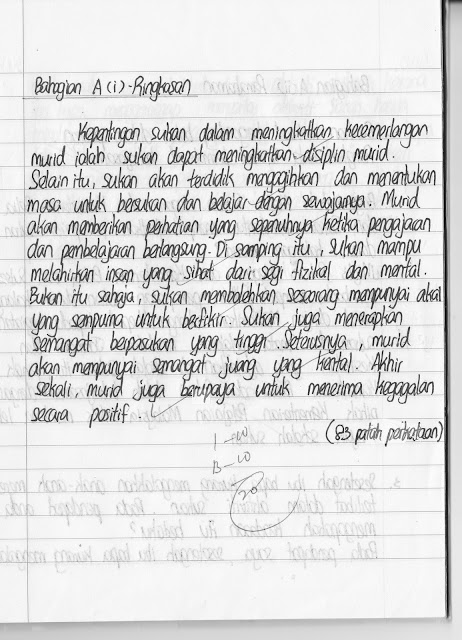 Bahagian A(i)-Ringkasan
Kepentingan sukan dalam meningkatkan kecemerlangan
murid ialah sukan dapat meningkatkan disiplin murid.
Selain itu, sukan akan terdidik mengagihkan dan menentukan
masa untuk bersukan dan belajar dengan sewajarnya. Murid
akan memberikan perhatian yang sepenuhnya ketika pengajaran
dan pembelajaran berlangsung. Di samping itu, sukan mampu
melahirkan insan yang sihat dari segi fizikal dan mental.
Bukan itu sahaja, sukan membolehkan seseorang mempunyai akal
yang sempurna untuk berfikir. Sukan juga menerapkan
semangat berpasukan yang tinggi. Seterusnya, murid
akan mempunyai semangat juang yang kental. Akhir
sekali, murid juga berupaya untuk menerima kegagalan
secara positif.
(83 patah perkataan)
I - 10
B - 10
20